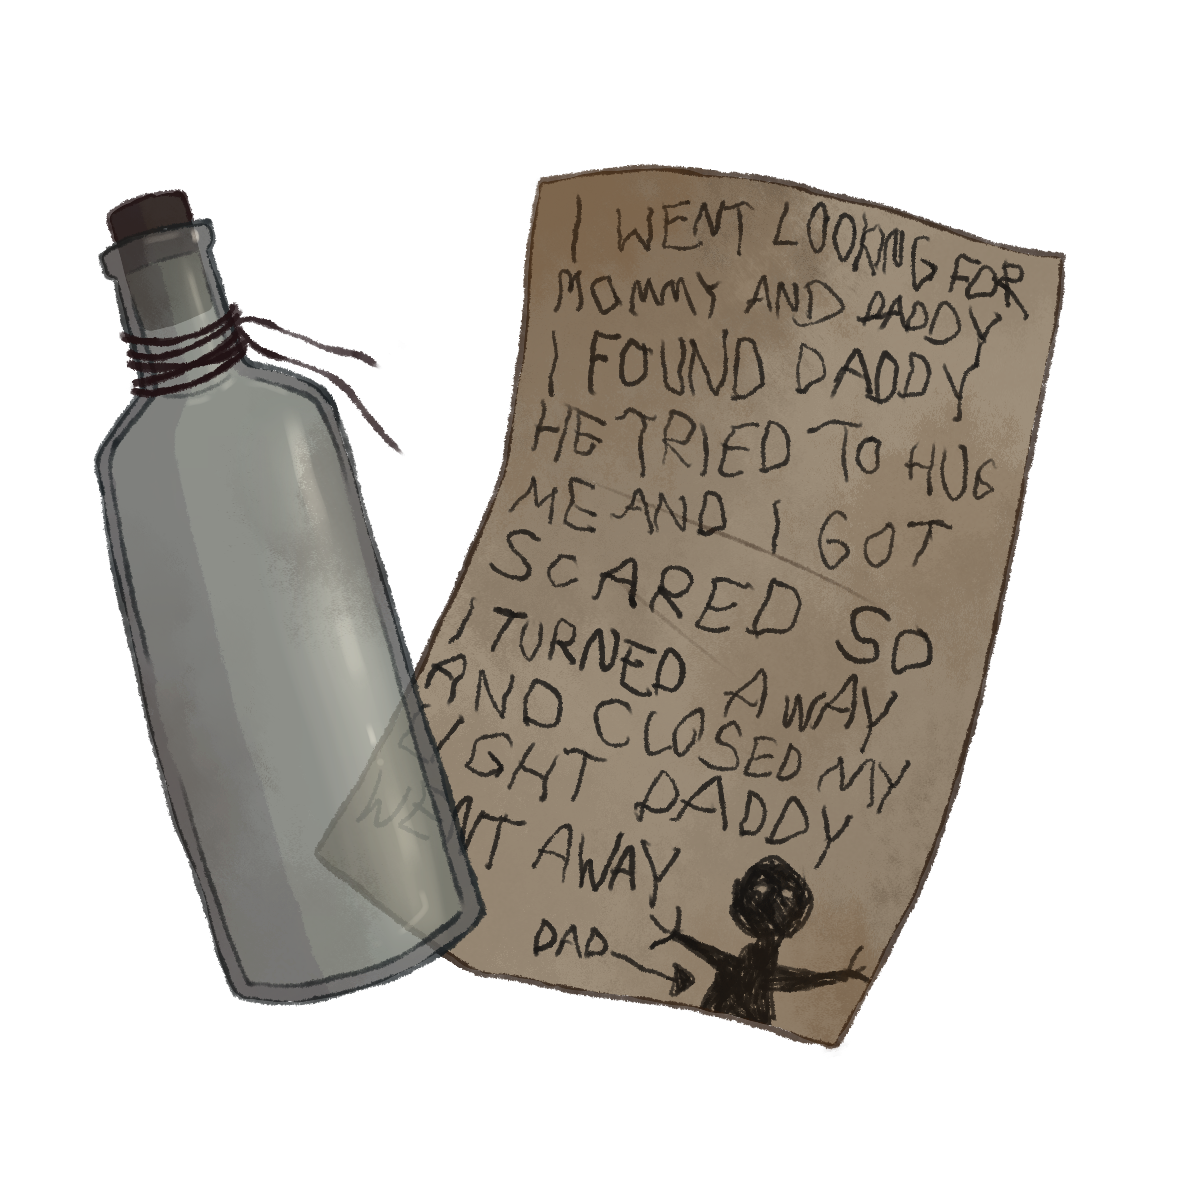 I WENT LOOKING FOR
MOMMY AND DADDY
I FOUND DADDY
HE TRIED TO HUG
ME AND I GOT
SCARED SO
I TURNED AWAY
AND CLOSED MY
SIGHT DADDY
WENT AWAY
DAD